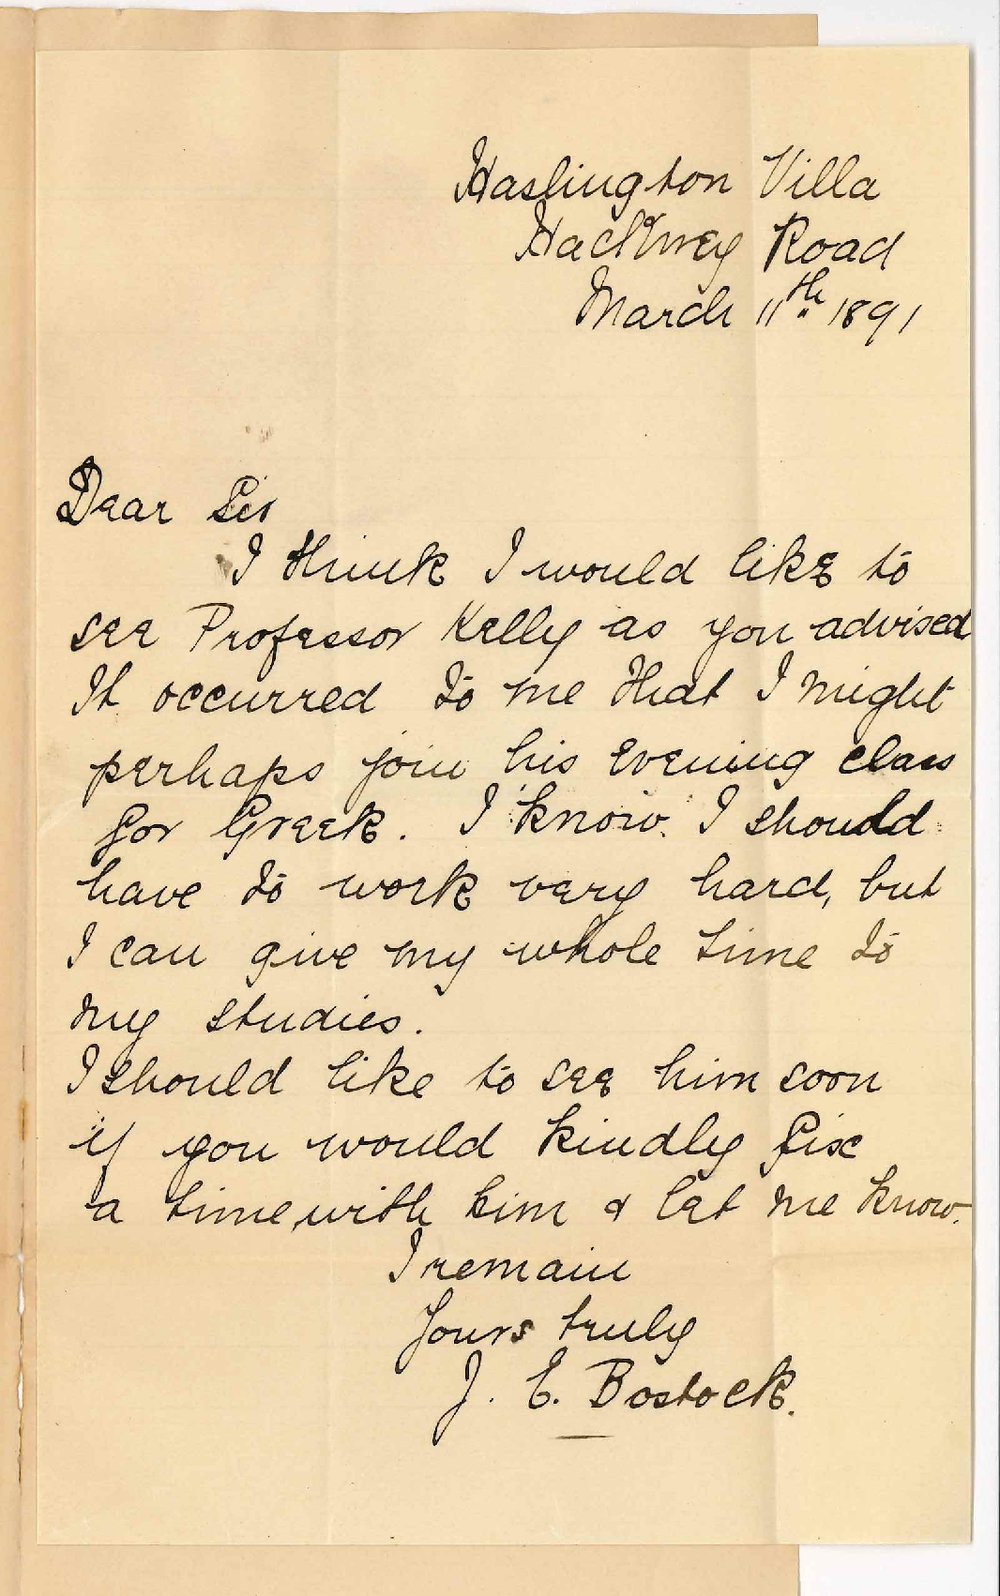 Haslington Villa
Hackney Road
March 11th 1891
Dear Sir
I think I would like to
see Professor Kelly as you advised
It occurred to me that I might
perhaps join his evening class
for Greek. I know I should
have to work very hard, but
I can give my whole time to
my studies.
I should like to see him soon
if you would kindly fix
a time with him & let me know.
I remain
Yours truly
J. E. Bostock.